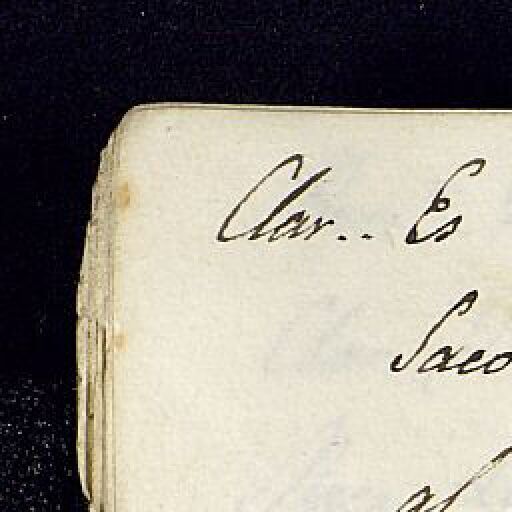 Clar.. Es
Saco